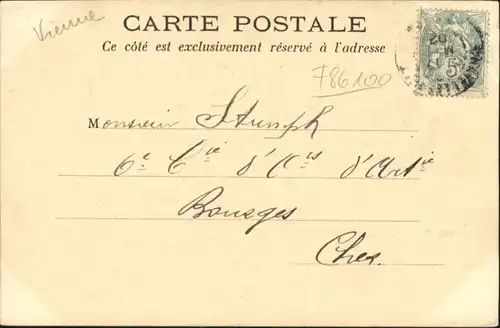 Vienne
CARTE POSTALE
Ce côté est exclusivement réservé à l'adresse
786100
Monsieur Stumph
6e Cie d'Ors d'Artie
Bourges
Cher